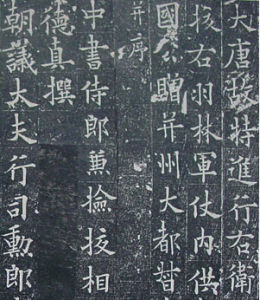 大唐故特進行右衛
挍右羽林軍仗內供
國公贈并州大都督
并序
中書侍郎兼撿挍相
德真撰
朝議大夫行司勳郎